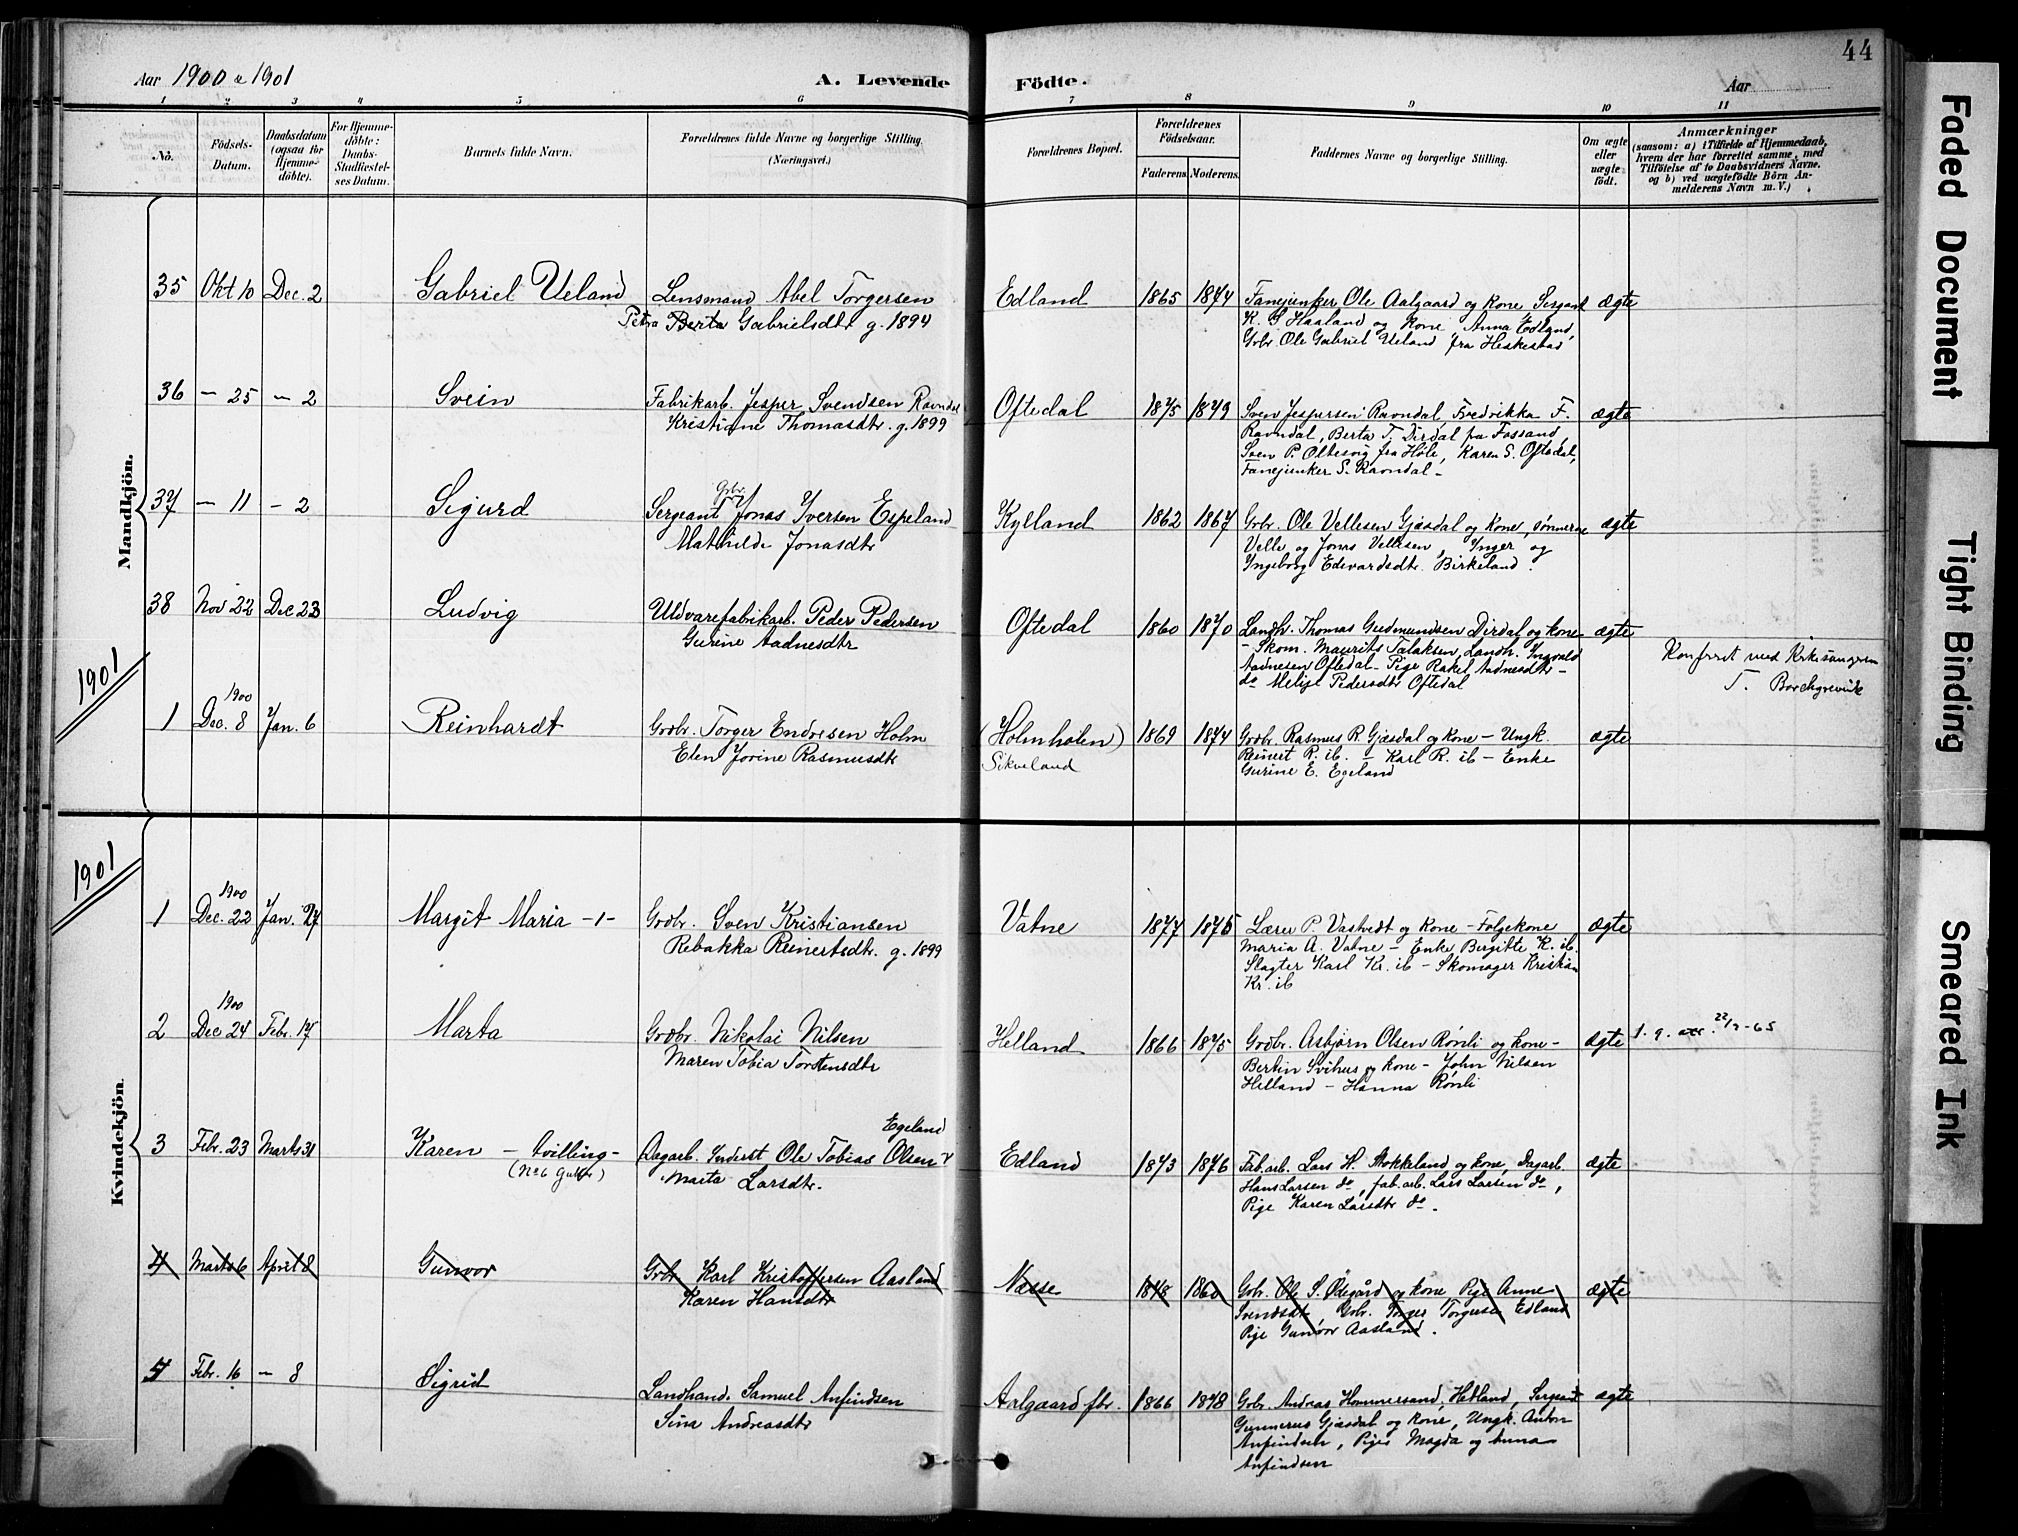 44
Aar 1900 & 1901
A. Levende
Födte.
Aar
1 2 3 4 5 6 7 8 9 10 11
No.
Födsels-
Datum.
Daabsdatum
(ogsaa for
Hjemme-
döbte).
For Hjemme-
döbte:
Daabs-
Stadfæstel-
ses Datum.
Barnets fulde Navn.
Forældrenes fulde Navne og borgerlige Stilling.
(Næringsvei.)
Forældrenes Bopæl.
Forældrenes
Födselsaar.
Faderens. Moderens.
Faddernes Navne og borgerlige Stilling.
Om ægte
eller
uægte
födt.
Anmærkninger
(saasom: a) i Tilfælde af Hjemmedaab,
hvem der har forrettet samme, med
Tilföielse af to Daabsvidners Navne.
og b) ved uægtefödte Börn An-
melderens Navn m. V.)
Mandkjön.
35 Okt 10 Dec. 2 Gabriel Ueland Lensmand Abel Torgersen Edland 1865 1874 Fanejunker Ole Aalgaard og kone Sergent ægte
Petra Berta Gabrielsdtr g. 1894 K. S Haaland og kone, Anna Edland,
Grbr. Ole Gabriel Ueland fra Heskestad
36 - 25 - 2 Svein Fabrikarb. Jesper Svendsen Ravndal Oftedal 1875 1879 Sven Jespersen Ravndal, Fredrikka F. ægte
Kristiane Thomasdtr. g. 1899 Ravndal, Berta T. Dirdal fra Fossand,
Sven P. Oltesvig fra Høle, Karen S. Oftedal,
Fanejunker S. Ravndal -
Grbr.
37 - 11 - 2 Sigurd Sergeant Jonas Iversen Espeland Kylland 1862 1867 Grbr. Ole Vellesen Gjæsdal og kone, sønnerne ægte
Mathilde Jonasdtr Velle og Jonas Vellesen, Inger og
Ingeborg Edevardsdtr. Birkeland.
38 Nov 22 Dec 23 Ludvig Uldvarefabrikarb. Peder Pedersen Oftedal 1860 1870 Landh. Thomas Gudmundsen Dirdal og kone ægte
Gurine Aadnesdtr - Skom. Maurits Talaksen, Landh. Ingvald
Aadnesen Oftedal - Pige Rakel Aadnesdtr -
do Pedersdtr Oftedal
Konferet med Kirkesangeren
T. Borchgrevink
1901
1900
1 Dec. 8 Jan. 6 Reinhardt Grdbr. Torger Endresen Holm (Holmholen) 1869 1874 Grdbr Rasmus R. Gjæsdal og kone - Ungk. ægte
Elen Jorine Rasmusdtr Sikveland Reinert R. ib. - Karl R. ib - Enke
Gurine E. Egeland
Kvindekjön.
1901
1900
1 Dec. 22 Jan. 27 Margit Maria -1- Grdbr. Sven Kristiansen Vatne 1877 1875 Lærer P. Vastvedt og kone - Følgekone ægte
Rebakka Reinertsdtr. g. 1899 Maria A. Vatne - Enke Bergitte K. ib.
Slagter Karl Kr. ib - Skomager Kristian
Kr. ib
1900
2 Dec 24 Febr. 17 Marta Grdbr. Nikolai Nilsen Helland 1866 1875 Grdbr. Asbjørn Olsen Rønli og kone - ægte 22/2-65
Maren Tobia Torstensdtr Bertin Svihus og kone - John Nilsen
Helland - Hanna Rønli
Egeland
3 Febr. 23 Marts 31 Karen - tvilling - Dagarb. Inderst Ole Tobias Olsen Edland 1873 1876 Fab.arb. Lars H. Stokkeland og kone, Dagarb. ægte
(No 6 Gutter) Marta Larsdtr. Hans Larsen do, fab.arb. Lars Larsen do,
Pige Karen Larsdtr do.
4 Marts 6 April 8 Gunvor Grbr. Karl Kristoffersen Aasland Næsse 1848 1860 Grbr. Ole S. Ødegård og kone Pige Anne ægte
Karen Hansdtr Svendsdtr Grbr. Torger Torgersen Edland
Pige Gunvor Aasland.
5 Febr. 16 - 8 Sigrid Landhand. Samuel Anfindsen Aalgaard fbr. 1866 1878 Grbr. Andreas Hommersand, Hetland, Sergeant ægte
Sina Andreasdtr Gunnerus Gjæsdal og kone, Ungk. Anton
Anfindsen, Piger Magda og Anna
Anfindsen
Faded Document
Tight Binding
Smeared Ink